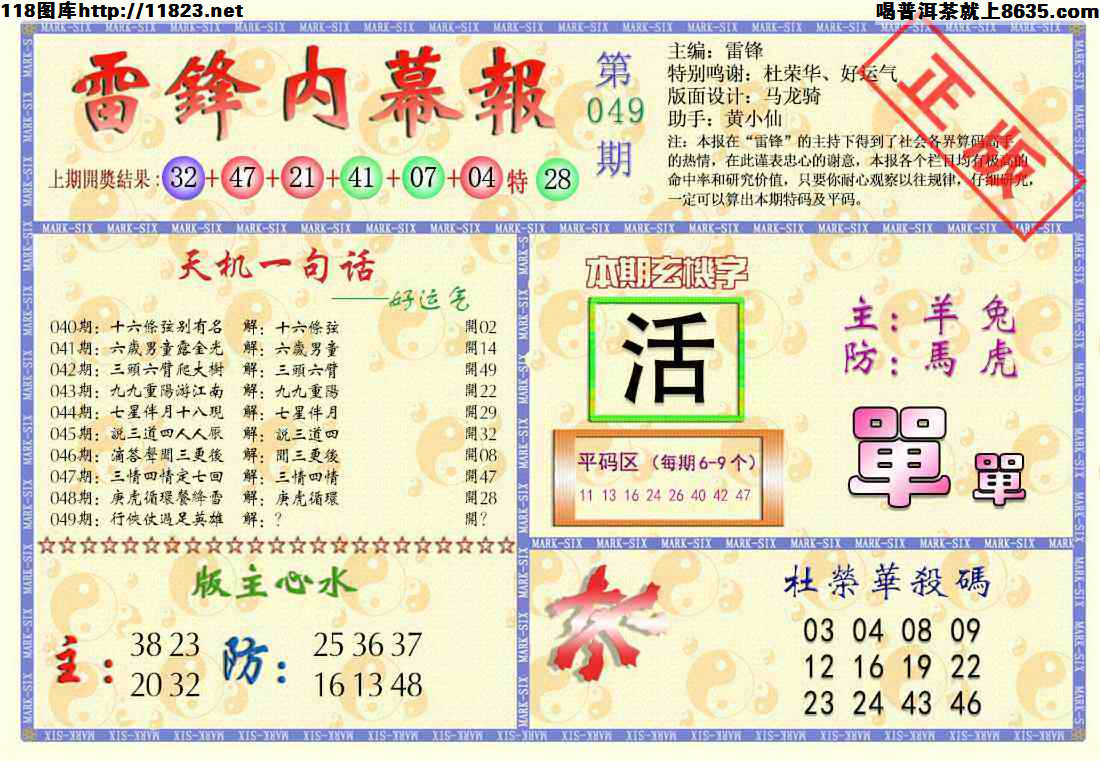 118图库http://11823.net
喝普洱茶就上8635.com
MARK-SIX
雷鋒内幕報
第
049
期
主编：雷锋
特别鸣谢：杜荣华、好运气
版面设计：马龙骑
助手：黄小仙
注：本报在“雷锋”的主持下得到了社会各界算码高手
的热情，在此谨表忠心的谢意，本报各个栏目均有极高的
命中率和研究价值，只要你耐心观察以往规律，仔细研究，
一定可以算出本期特码及平码。
正版
上期開獎結果：32+47+21+41+07+04特28
天机一句话
——好运气
040期：十六條弦别有名 解：十六條弦 開02
041期：六歲男童露金光 解：六歲男童 開14
042期：三頭六臂爬大樹 解：三頭六臂 開49
043期：九九重陽游江南 解：九九重陽 開22
044期：七星伴月十八現 解：七星伴月 開29
045期：説三道四人人厭 解：説三道四 開32
046期：滴答聲聞三更後 解：聞三更後 開08
047期：三情四情定七回 解：三情四情 開47
048期：庚虎循環餐絳雪 解：庚虎循環 開28
049期：行俠仗過足英雄 解：? 開?
☆☆☆☆☆☆☆☆☆☆☆☆☆☆☆☆☆☆☆☆☆☆☆
版主心水
主：
38 23
20 32
防：
25 36 37
16 13 48
本期玄機字
活
平码区（每期6-9个）
11 13 16 24 26 40 42 47
主：羊 兔
防：馬 虎
單
單
杜榮華殺碼
03 04 08 09
12 16 19 22
23 24 43 46